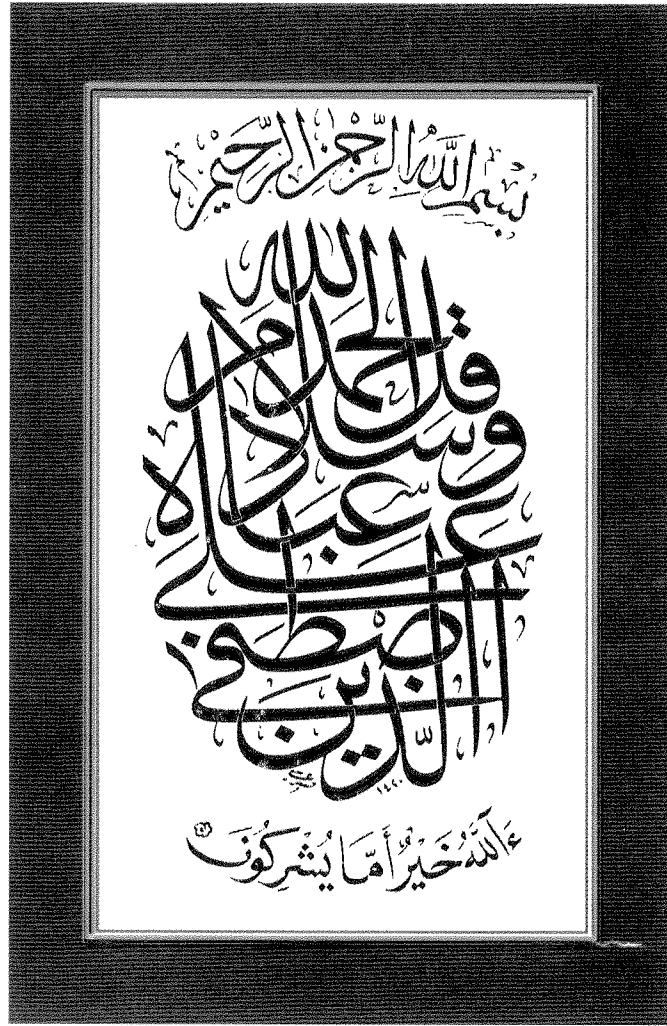 بِسْمِ اللَّهِ الرَّحْمَٰنِ الرَّحِيمِ
قل الحمد لله
وسلام
على عباده
الذين اصطفى
١٤٢٠
ءَآللَّهُ خَيْرٌ أَمَّا يُشْرِكُونَ